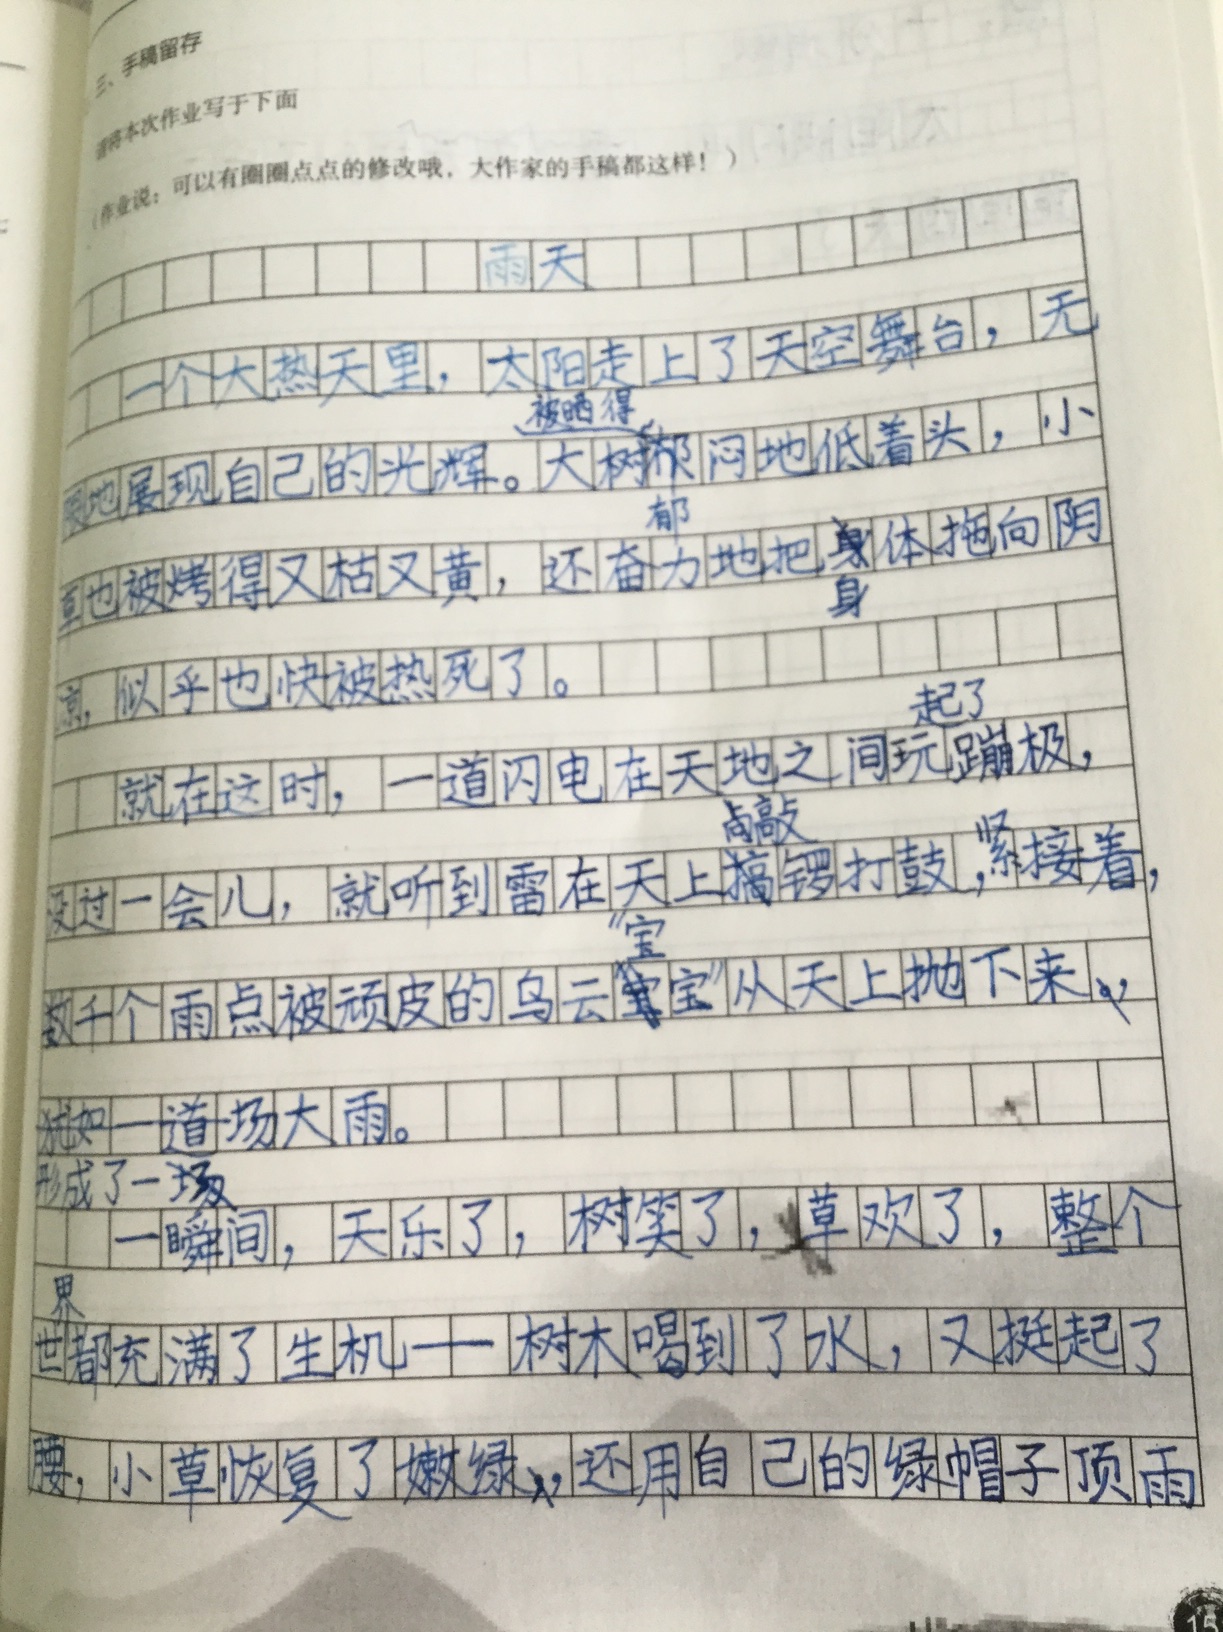 三、手稿留存
请将本次作业写于下面
（作业说：可以有圈圈点点的修改哦，大作家的手稿都这样！）
雨天
一个大热天里，太阳走上了天空舞台，无
被晒得
限地展现自己的光辉。大树郁闷地低着头，小
郁
草也被烤得又枯又黄，还奋力地把身体拖向阴
身
凉，似乎也快被热死了。
起了
就在这时，一道闪电在天地之间玩蹦极，
敲
没过一会儿，就听到雷在天上搞锣打鼓，紧接着，
宝
数千个雨点被顽皮的乌云“宝宝”从天上抛下来，
犹如一道场大雨。
形成了一场
一瞬间，天乐了，树笑了，草欢了，整个
界
世都充满了生机——树木喝到了水，又挺起了
腰，小草恢复了嫩绿，还用自己的绿帽子顶雨
15